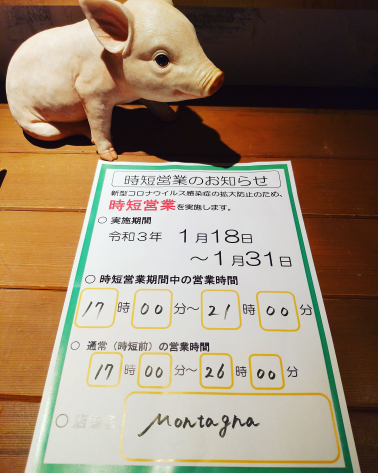 時短営業のお知らせ
新型コロナウイルス感染症の拡大防止のため、
時短営業を実施します。
○ 実施期間
令和3年 1月18日
～1月31日
○ 時短営業期間中の営業時間
17時00分～21時00分
○ 通常（時短前）の営業時間
17時00分～26時00分
○
Montagna